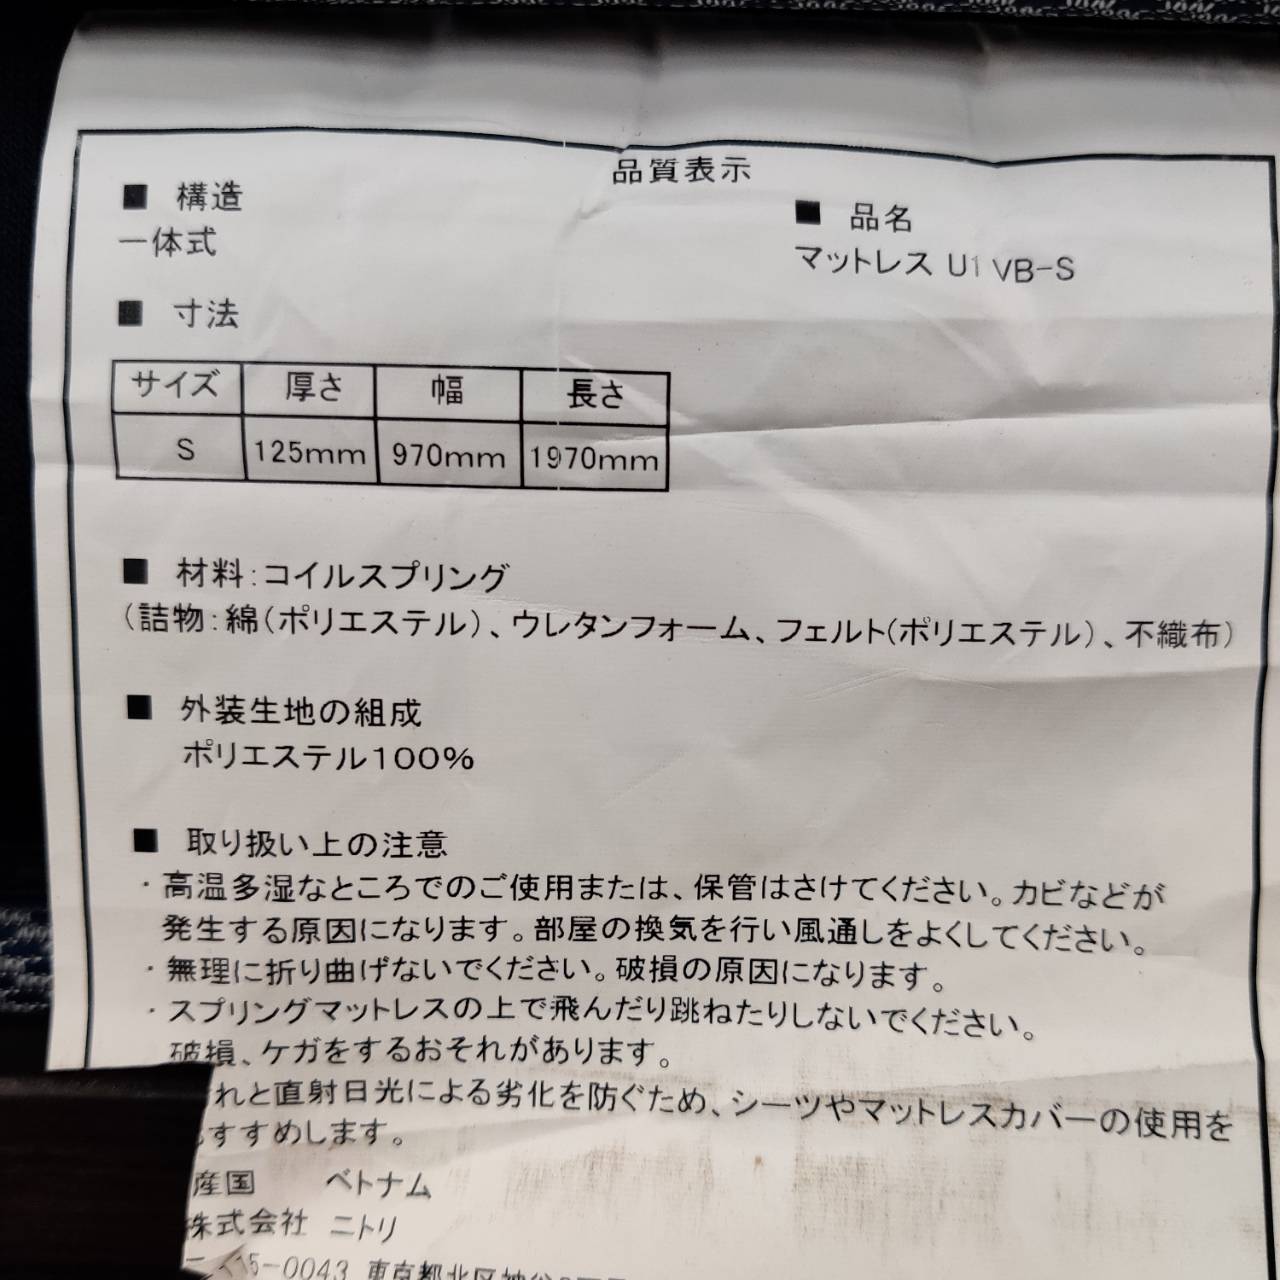 品質表示
■ 構造
一体式
■ 品名
マットレス U1 VB-S
■ 寸法
サイズ 厚さ 幅 長さ
S 125mm 970mm 1970mm
■ 材料:コイルスプリング
(詰物:綿(ポリエステル)、ウレタンフォーム、フェルト(ポリエステル)、不織布)
■ 外装生地の組成
ポリエステル100%
■ 取り扱い上の注意
・高温多湿なところでのご使用または、保管はさけてください。カビなどが
発生する原因になります。部屋の換気を行い風通しをよくしてください。
・無理に折り曲げないでください。破損の原因になります。
・スプリングマットレスの上で飛んだり跳ねたりしないでください。
破損、ケガをするおそれがあります。
れと直射日光による劣化を防ぐため、シーツやマットレスカバーの使用を
すすめします。
産国 ベトナム
株式会社 ニトリ
5-0043 東京都北区神谷